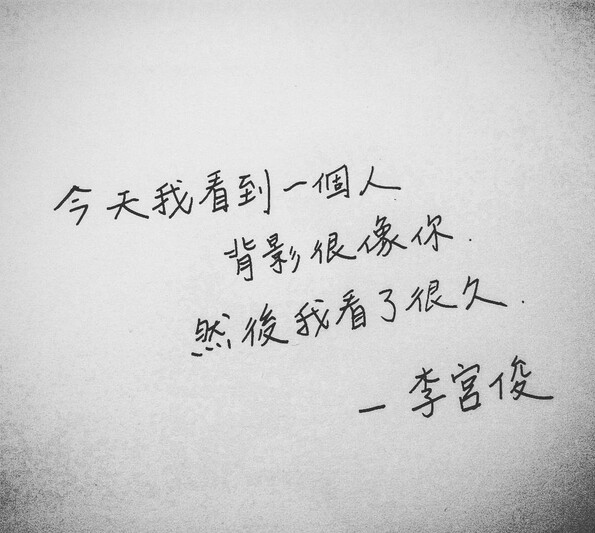 今天我看到一個人
背影很像你.
然後我看了很久.
-李宮俊